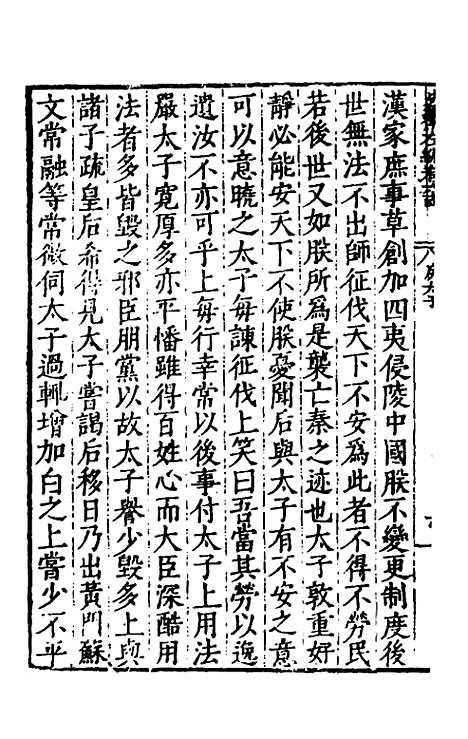 漢家庶事草創加四夷侵陵中國朕不變更制度後
世無法不出師征伐天下不安為此者不得不勞民
若後世又如朕所為是襲亡秦之迹也太子敦重好
靜必能安天下不使朕憂聞后與太子有不安之意
可以意曉之太子每諫征伐上笑曰吾當其勞以逸
遺汝不亦可乎上每行幸常以後事付太子上用法
嚴太子寬厚多亦平憣雖得百姓心而大臣深酷用
法者多皆毀之邪臣朋黨以故太子譽少毀多上與
諸子疏皇后希得見太子嘗謁后移日乃出黃門蘇
文常融等常微伺太子過輒增加白之上嘗少不平
戾太子